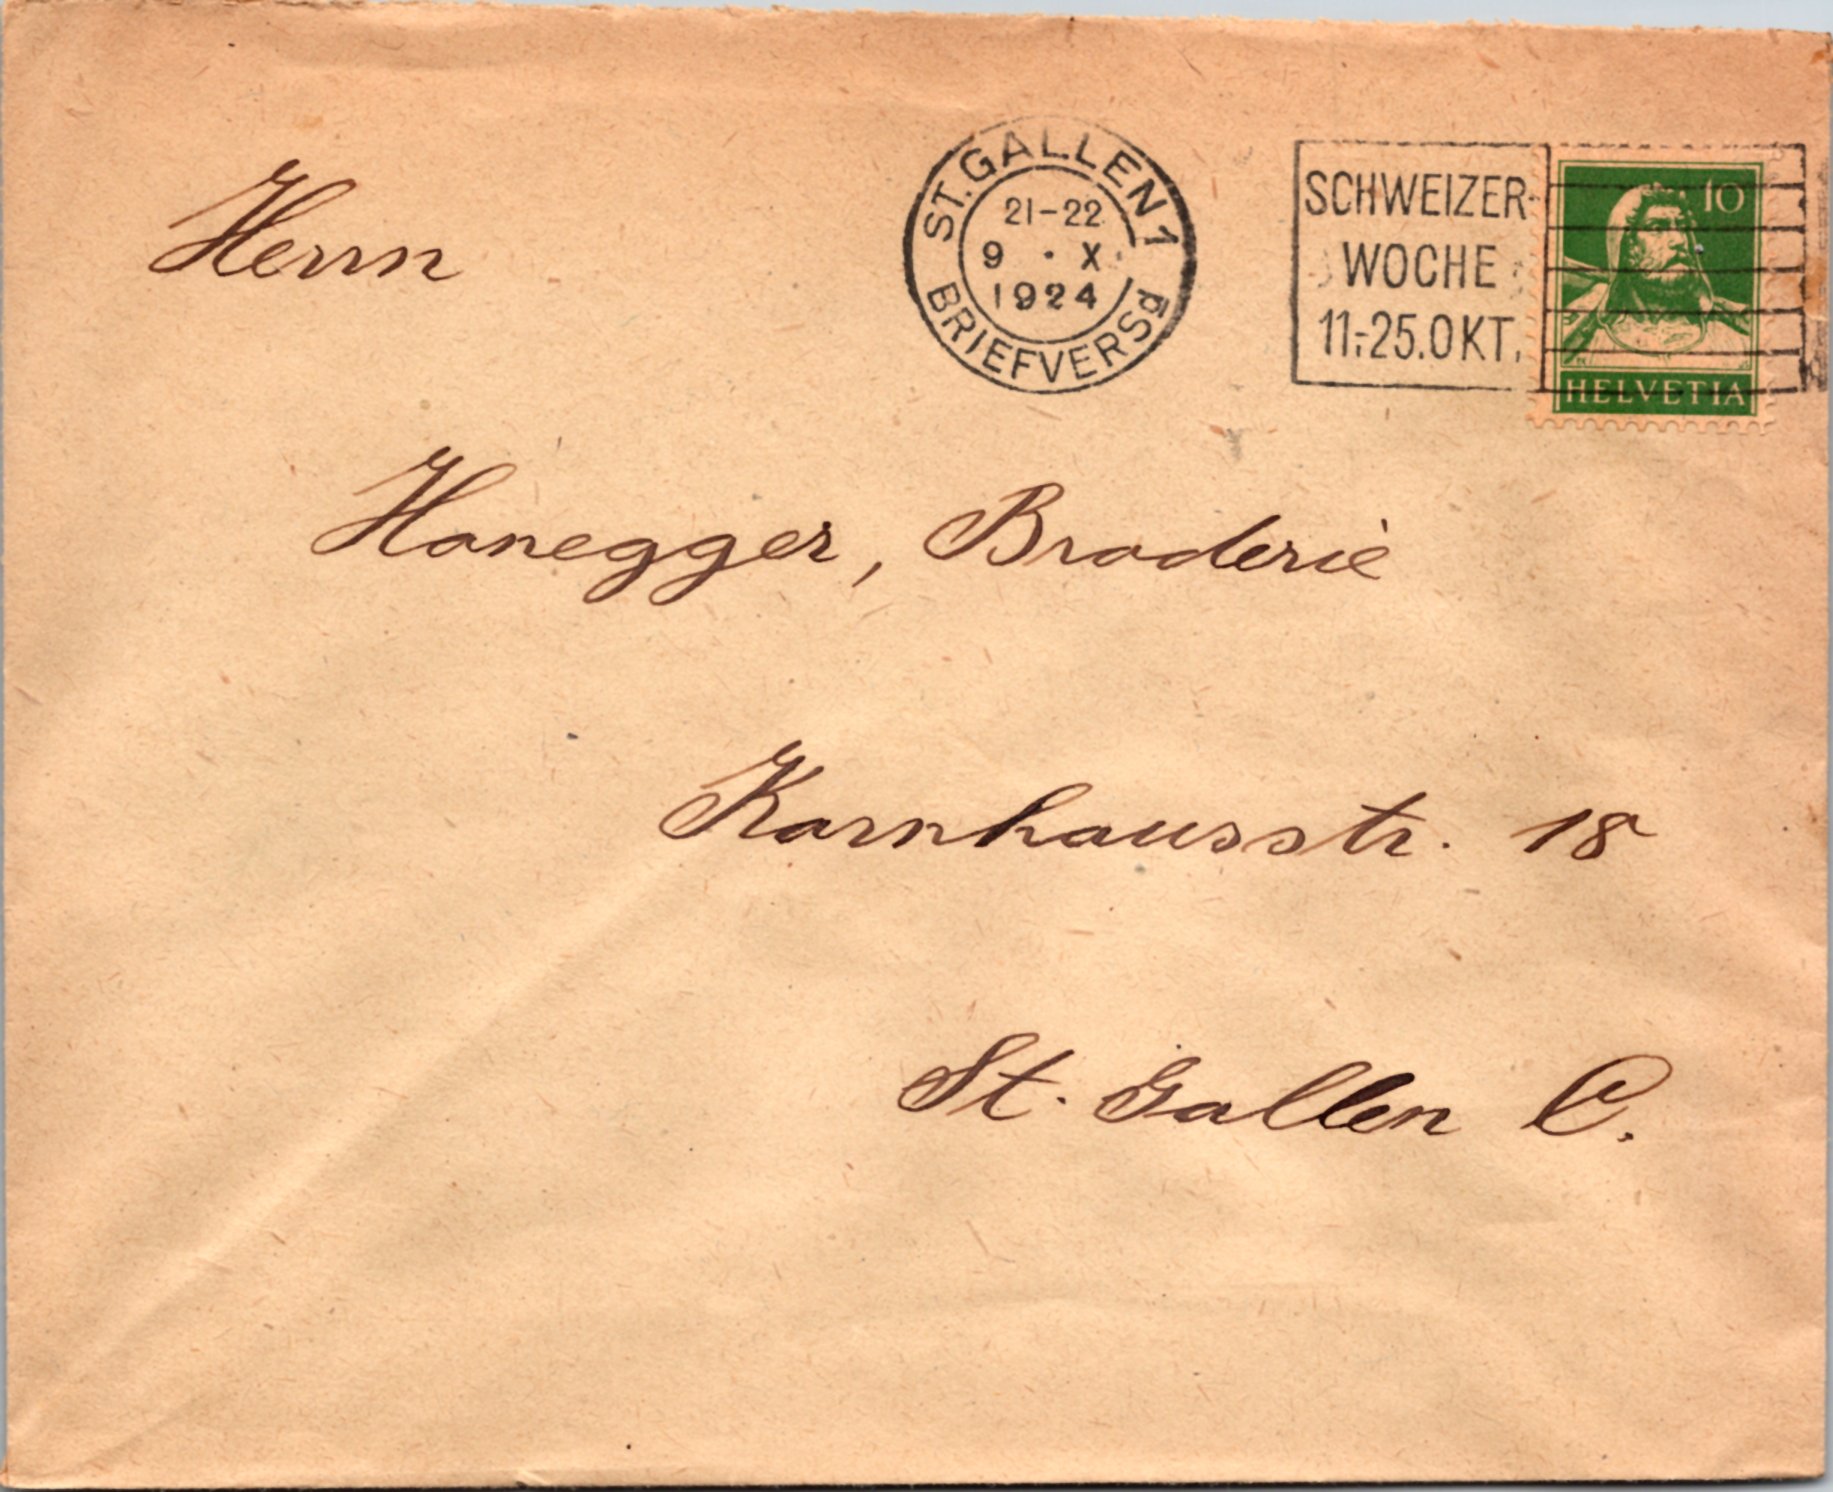 ST. GALLEN 1
21-22
9 · X
1924
BRIEFVERSd
SCHWEIZER-
WOCHE
11.-25. OKT.
10
HELVETIA
Herrn
Honegger, Broderie
Kornhausstr. 18
St. Gallen C.